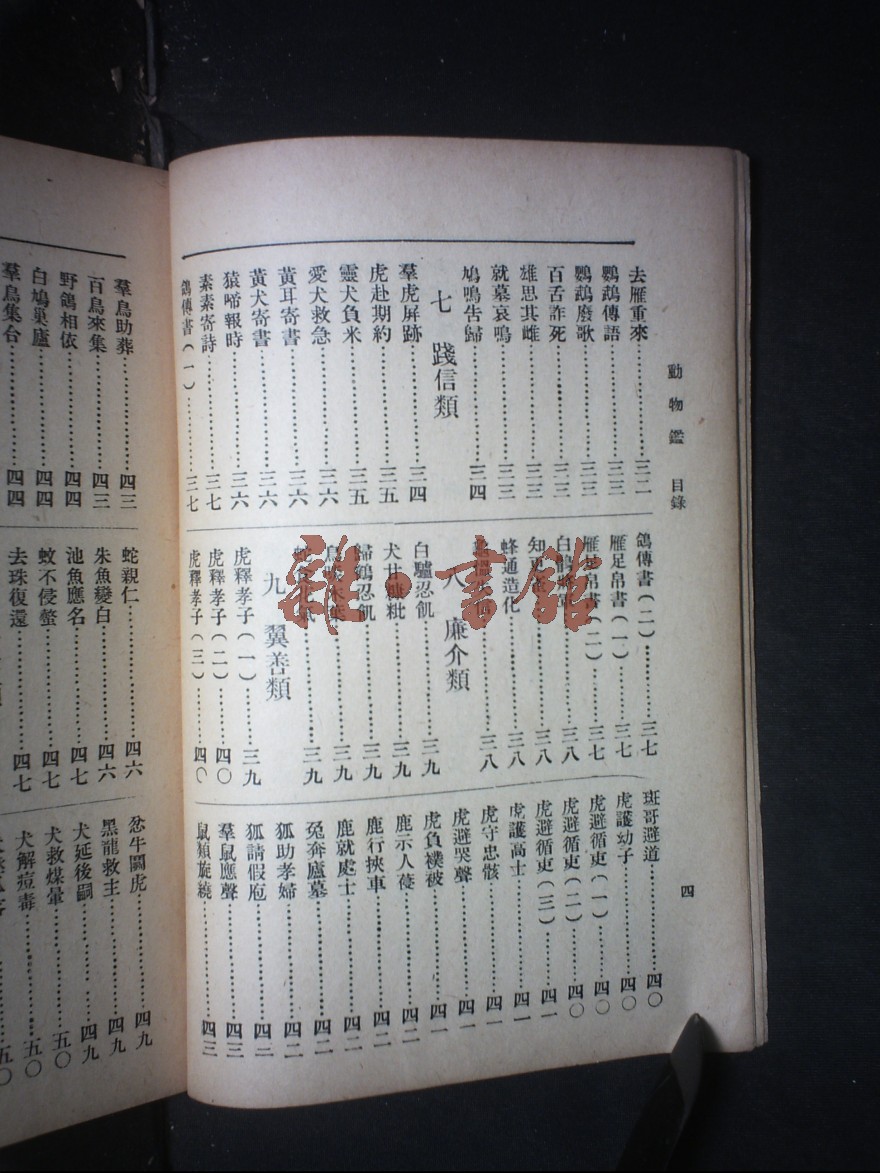 動物鑑 目錄
四
去雁重來……三二
鸚鵡傳語……三三
鸚鵡廢歌……三三
百舌詐死……三三
雄思其雌……三三
就墓哀鳴……三三
鳩鳴告歸……三四
七 踐信類
羣虎屏跡……三四
虎赴期約……三五
靈犬負米……三五
愛犬救急……三六
黃耳寄書……三六
黃犬寄書……三六
猿啼報時……三六
素素寄詩……三七
鴿傳書(一)……三七
鴿傳書(二)……三七
雁足帛書(一)……三七
雁足帛書(二)……三七
白鷴……三八
知更雀……三八
蜂通造化……三八
三八
八 廉介類
白驢忍飢……三九
犬甘糠粃……三九
歸鷄忍飢……三九
三九
三九
九 翼善類
虎釋孝子(一)……三九
虎釋孝子(二)……四〇
虎釋孝子(三)……四〇
斑哥避道……四〇
虎護幼子……四〇
虎避循吏(一)……四〇
虎避循吏(二)……四〇
虎避循吏(三)……四一
虎護高士……四一
虎守忠骸……四一
虎避哭聲……四一
虎負襆被……四一
鹿示人徑……四二
鹿行挾車……四二
鹿就處士……四二
兔奔廬墓……四二
狐助孝婦……四二
狐請假庖……四三
羣鼠應聲……四三
鼠類旋繞……四三
羣鳥助葬……四三
百鳥來集……四三
野鴿相依……四四
白鳩巢廬……四四
羣鳥集台……四四
蛇親仁……四六
朱魚變白……四六
池魚應名……四七
蚊不侵螫……四七
去珠復還……四七
忿牛鬭虎……四九
黑龍救主……四九
犬延後嗣……四九
犬救煤暈……五〇
犬解痘毒……五〇
五〇
雜·書館